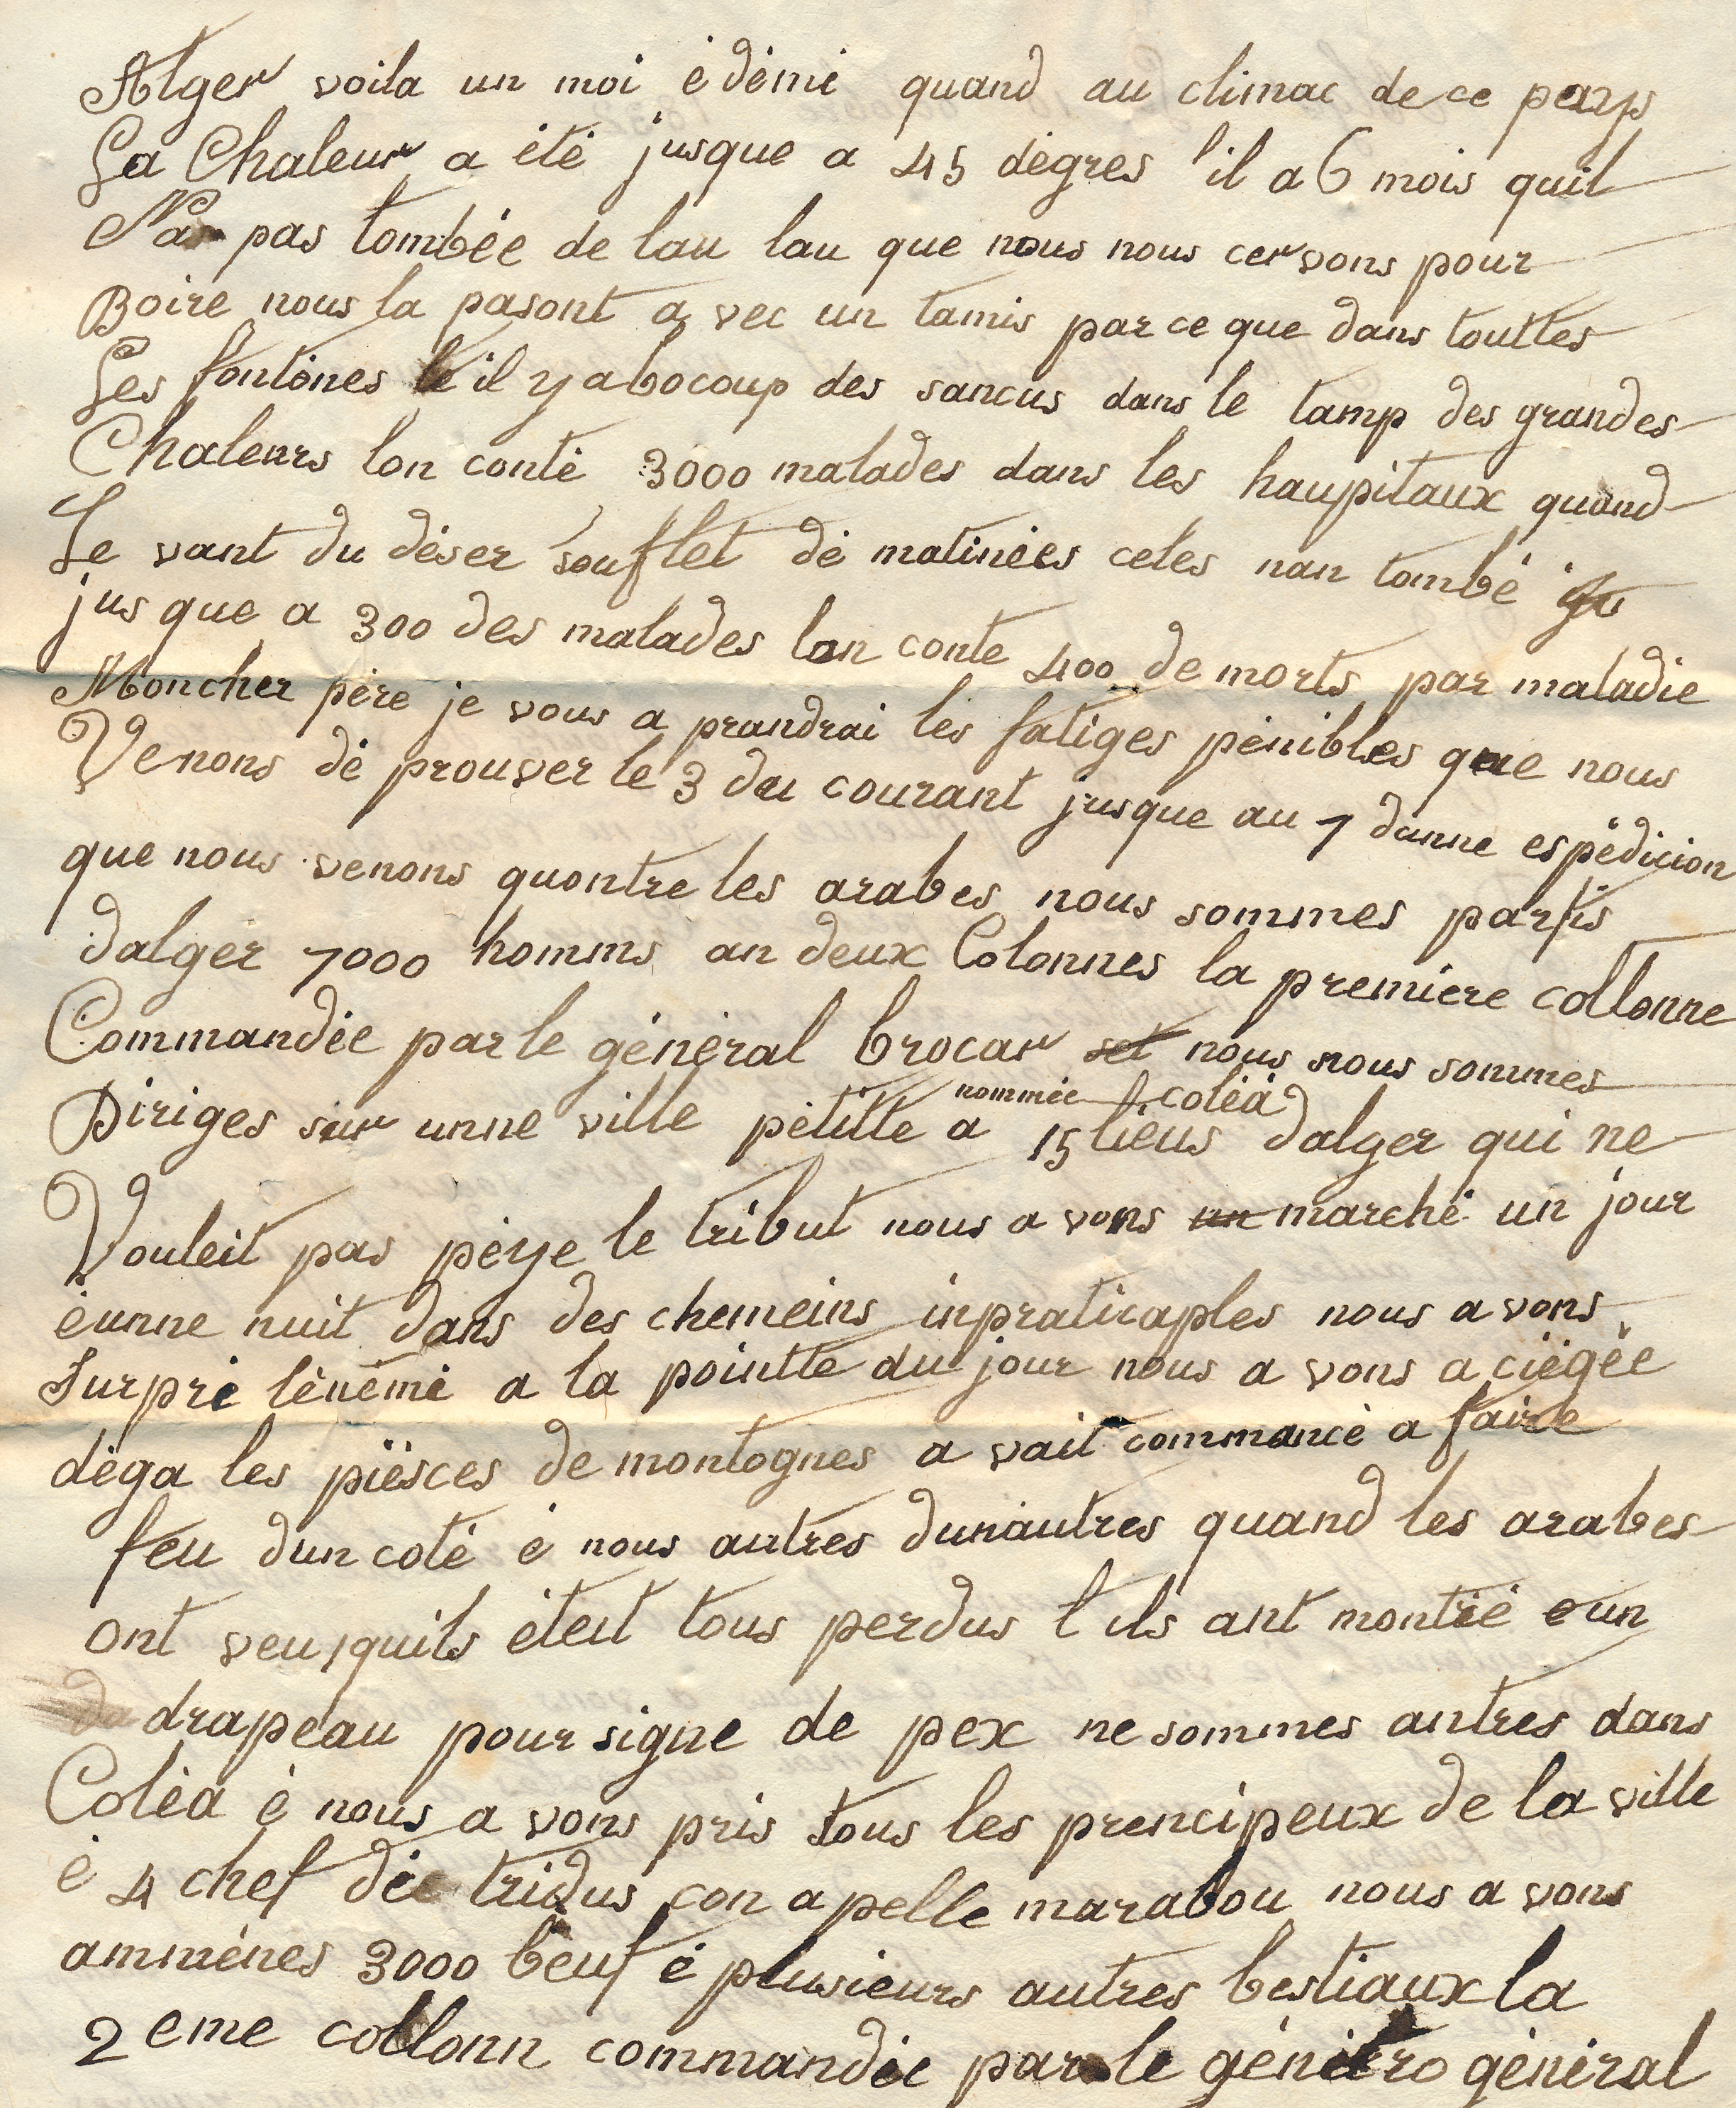 Alger voila un moi é démi quand au climac de ce peays
La Chaleur a été jusque a 45 dégres il a 6 mois quil
Na pas tombée de lau lau que nous nous cervons pour
Boire nous la pasont a vec un tamis par ce que dans touttes
Les fontönes il y abocoup des sancus dans le tamp des grandes
Chaleurs lon conté 3000 malades dans les haupitaux quand
Le vant du déser souflet dé matinées celes nan tombé
jus que a 300 des malades lon conte 400 de morts par maladie
Moncher pére je vous a prandrai les fatiges pénibles que nous
Venons dé prouver le 3 du courant jusque au 7 dunne espédicion
que nous venons quontre les arabes nous sommes partis
dalger 7000 homms an deux Colonnes la premiere collonne
Commandée par le général brocar set nous nous sommes
Diriges sur unne ville pétitte a nommée coléa 15 lieus dalger qui ne
Vouleit pas péye le tribut nous a vons un marché un jour
éunne nuit dans des chemeins inpraticaples nous a vons
Surpré lénémé a la pointte du jour nous a vons a ciégée
déga les piésces de montognes a vait commancé a faire
feu dun coté é nous autres dunautres quand les arabes
ont veu quils éteit tous perdus l ils ant montré eun
drapeau pour signe de pex ne sommes antres dans
Coléa é nous a vons pris tous les prencipeux de la ville
é 4 chef dée tridus con apelle marabou nous a vons
amménés 3000 beuf é plusieurs autres bestiaux la
2eme collonn commandée par le général